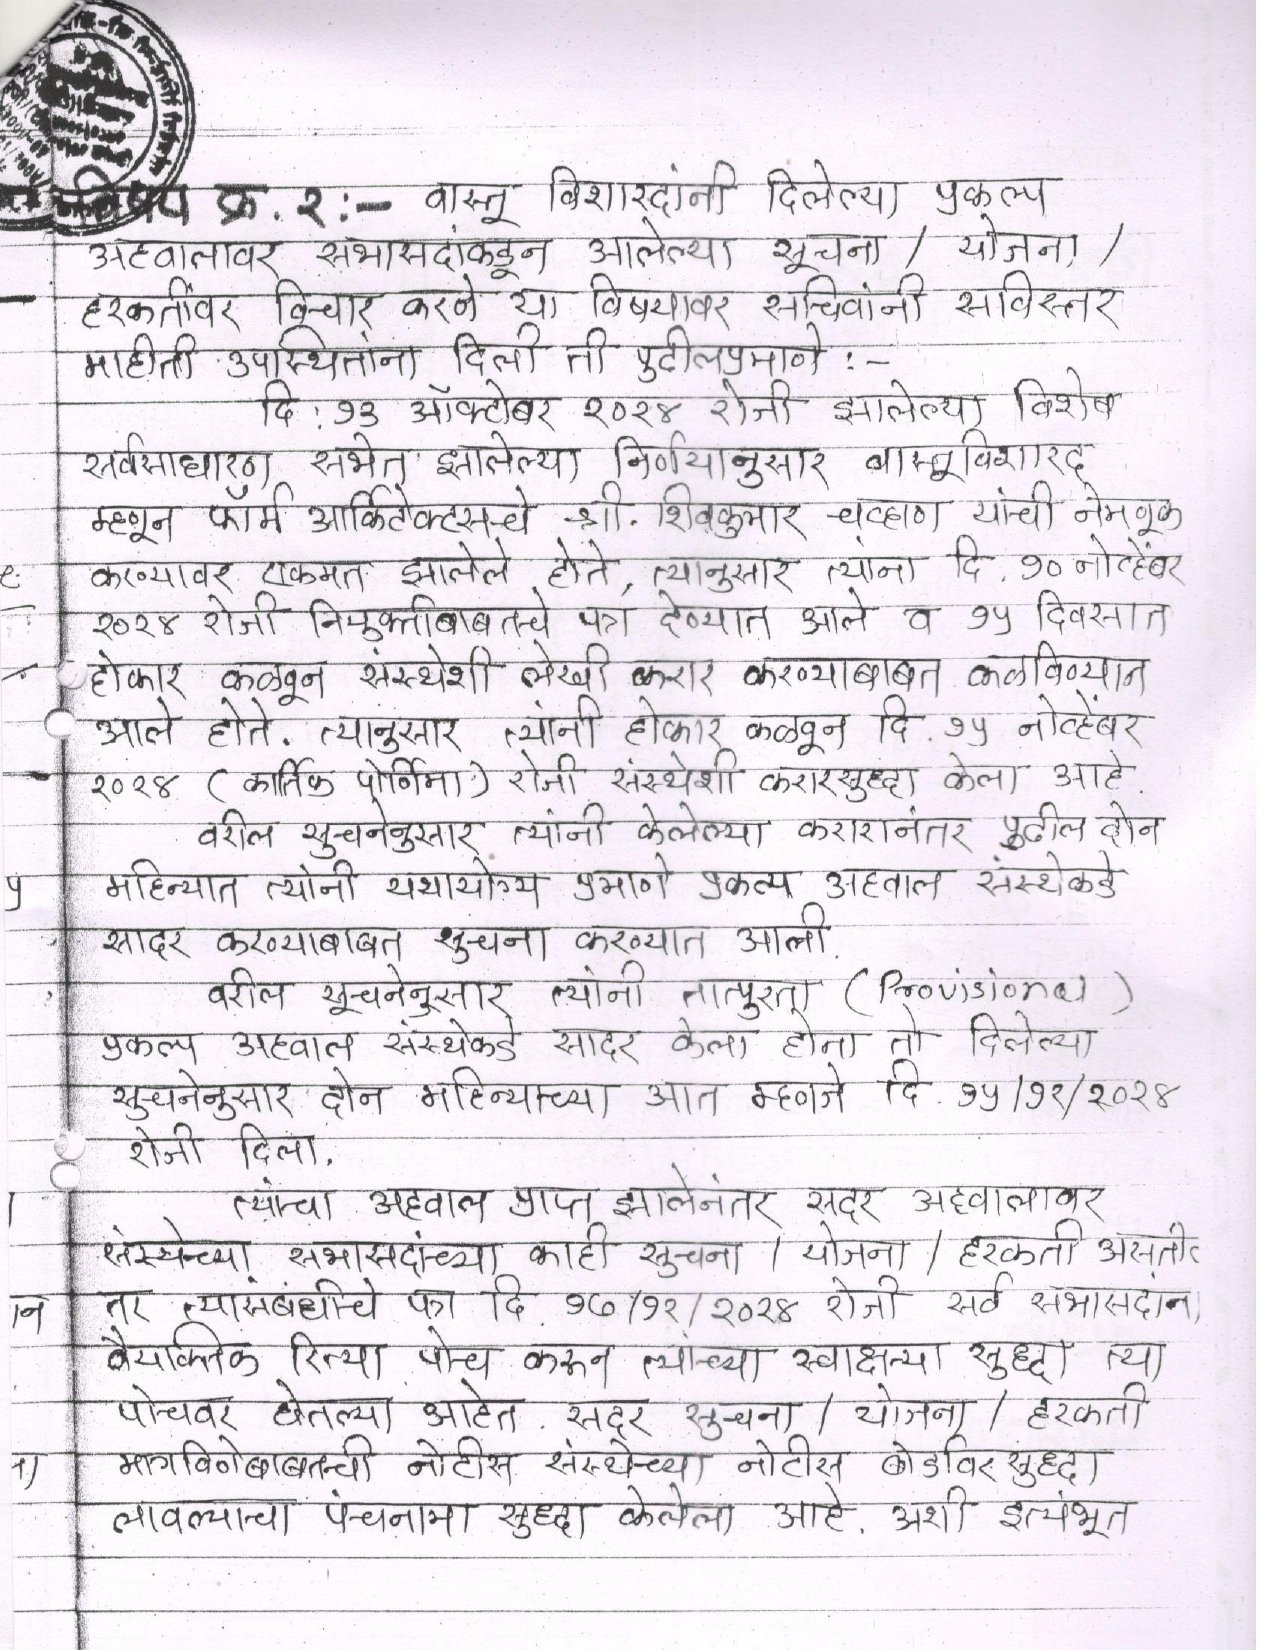 विषय क्र. २:- वास्तू विशारदांनी दिलेल्या प्रकल्प
अहवालावर सभासदांकडून आलेल्या सूचना / योजना /
हरकतींवर विचार करणे या विषयावर सचिवांनी सविस्तर
माहीती उपस्थितांना दिली ती पुढीलप्रमाणे :-
दि : १३ ऑक्टोबर २०२४ रोजी झालेल्या विशेष
सर्वसाधारण सभेत झालेल्या निर्णयानुसार वास्तूविशारद
म्हणून फॉर्म आर्किटेक्टसचे श्री. शिवकुमार चव्हाण यांची नेमणूक
करण्यावर एकमत झालेले होते, त्यानुसार त्यांना दि. १० नोव्हेंबर
२०२४ रोजी नियुक्तीबाबतचे पत्र देण्यात आले व १५ दिवसात
होकार कळवून संस्थेशी लेखी करार करण्याबाबत कळविण्यात
आले होते. त्यानुसार त्यांनी होकार कळवून दि. १५ नोव्हेंबर
२०२४ (कार्तिक पोर्णिमा) रोजी संस्थेशी करारसुध्दा केला आहे.
वरील सुचनेनुसार त्यांनी केलेल्या करारानंतर पुढील दोन
महिन्यात त्यांनी यथायोग्य प्रमाणे प्रकल्प अहवाल संस्थेकडे
सादर करण्याबाबत सुचना करण्यात आली.
वरील सूचनेनुसार त्यांनी तात्पुरता (Provisional)
प्रकल्प अहवाल संस्थेकडे सादर केला होता तो दिलेल्या
सुचनेनुसार दोन महिन्याच्या आत म्हणजे दि. १५/१२/२०२४
रोजी दिला.
त्यांचा अहवाल प्राप्त झालेनंतर सदर अहवालावर
संस्थेच्या सभासदांच्या काही सुचना / योजना / हरकती असतील
तर त्यासंबंधीचे पत्र दि. १७/१२/२०२४ रोजी सर्व सभासदांना
वैयक्तिक रित्या पोच करून त्यांच्या स्वाक्षऱ्या सुध्दा त्या
पोचवर घेतल्या आहेत. सदर सुचना / योजना / हरकती
मागविणेबाबतची नोटीस संस्थेच्या नोटीस बोर्डावर सुध्दा
लावल्याचा पंचनामा सुध्दा केलेला आहे. अशी इत्यंभूत